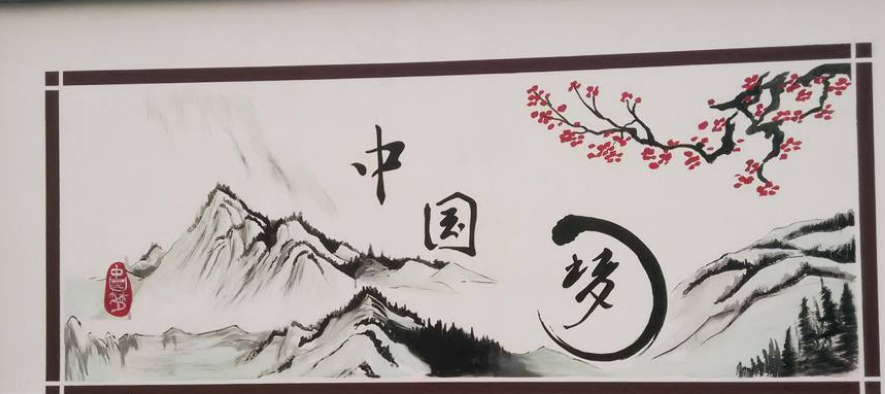 中国梦
中国梦